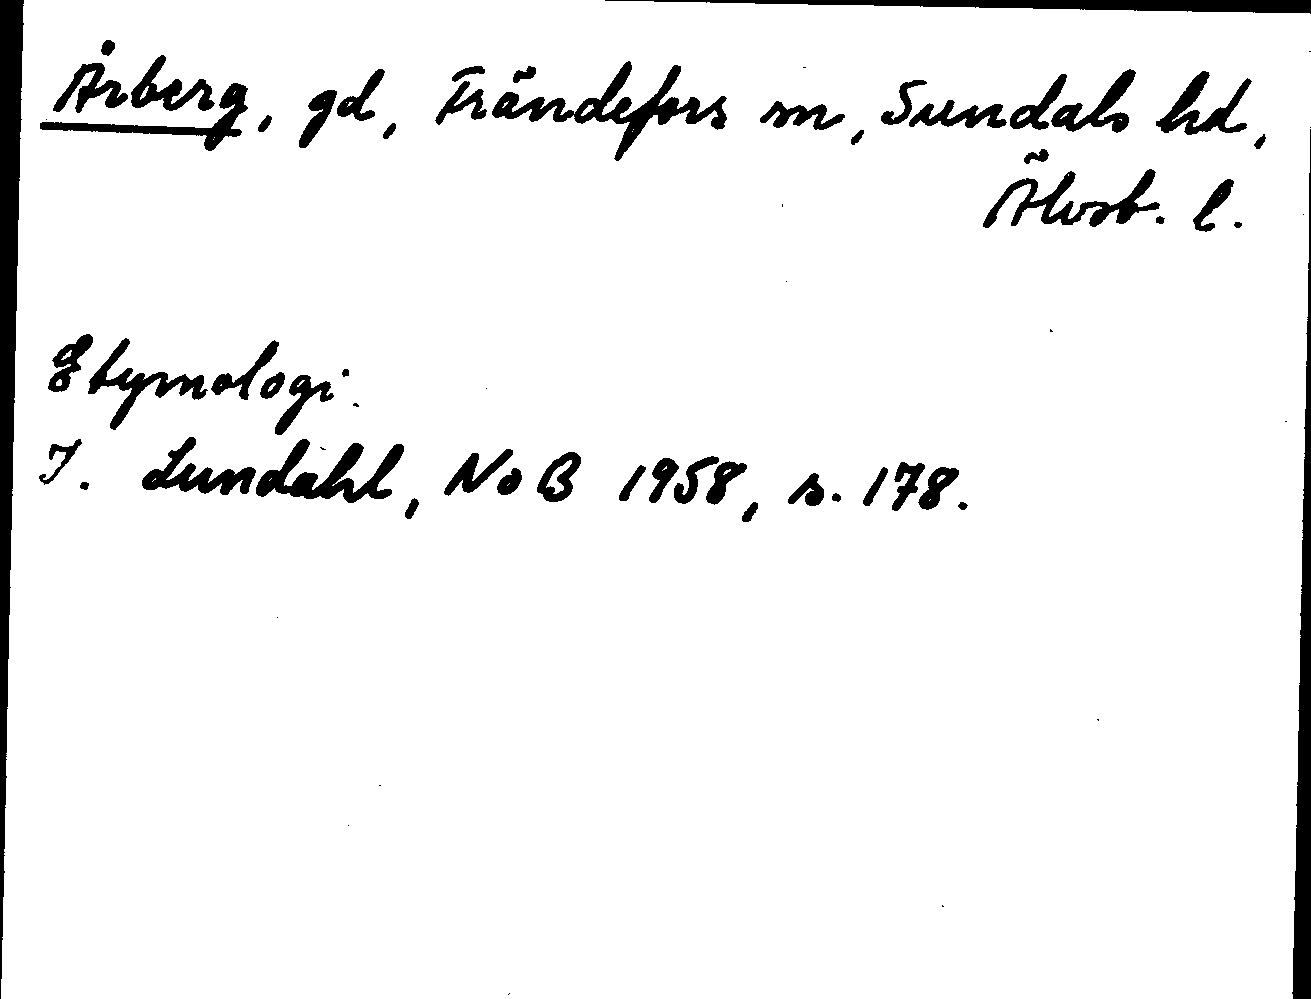 Årberg, gd, Frändefors sn, Sundals hd,
Älvsb. l.
Etymologi.
I. Lundahl, NoB 1958, s. 178.